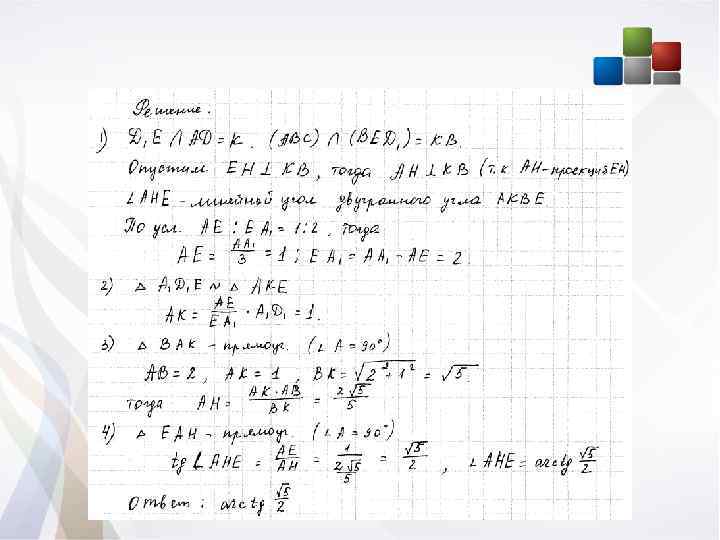 Решение.
1) D₁E ∩ AD = K. (ABC) ∩ (BED₁) = KB.
Опустим EH ⊥ KB, тогда AH ⊥ KB (т.к AH-проекция EH)
∠AHE - линейный угол двугранного угла AKBE.
По усл. AE : EA₁ = 1:2, тогда
AE = AA₁/3 = 1; EA₁ = AA₁ - AE = 2.
2) △ A₁D₁E ~ △ AKE
AK = AE/EA₁ · A₁D₁ = 1.
3) △ BAK - прямоуг. (∠A = 90°)
AB = 2, AK = 1, BK = √(2² + 1²) = √5.
тогда AH = AK·AB/BK = 2√5/5
4) △ EAH - прямоуг. (∠A = 90°)
tg ∠AHE = AE/AH = 1/(2√5/5) = √5/2, ∠AHE = arctg √5/2
Ответ: arctg √5/2